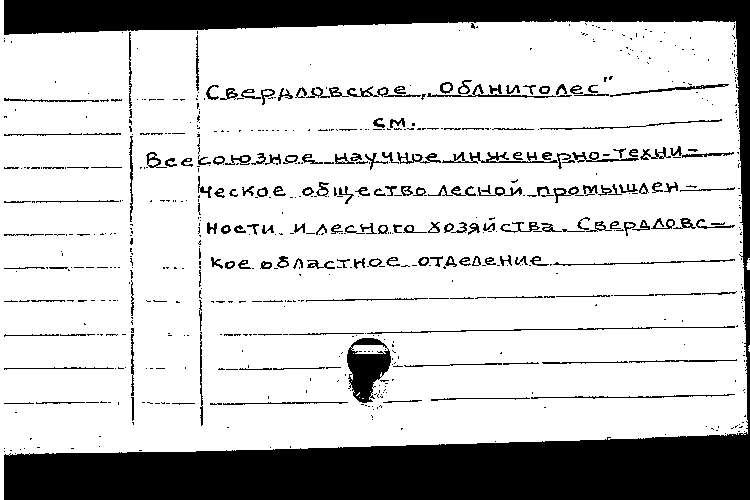 Свердловское „Облнитолес"
см.
Всесоюзное научное инженерно-техни-
ческое общество лесной промышлен-
ности и лесного хозяйства. Свердловс-
кое областное отделение.